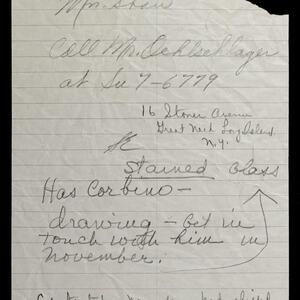 Mr. Shaw
Call Mr. Oehlschlager
at Su 7-6779
16 Stoner Avenue
Great Neck Long Island
N.Y.
Stained Glass
Has Corbino -
drawing - Get in
touch with him in
November.